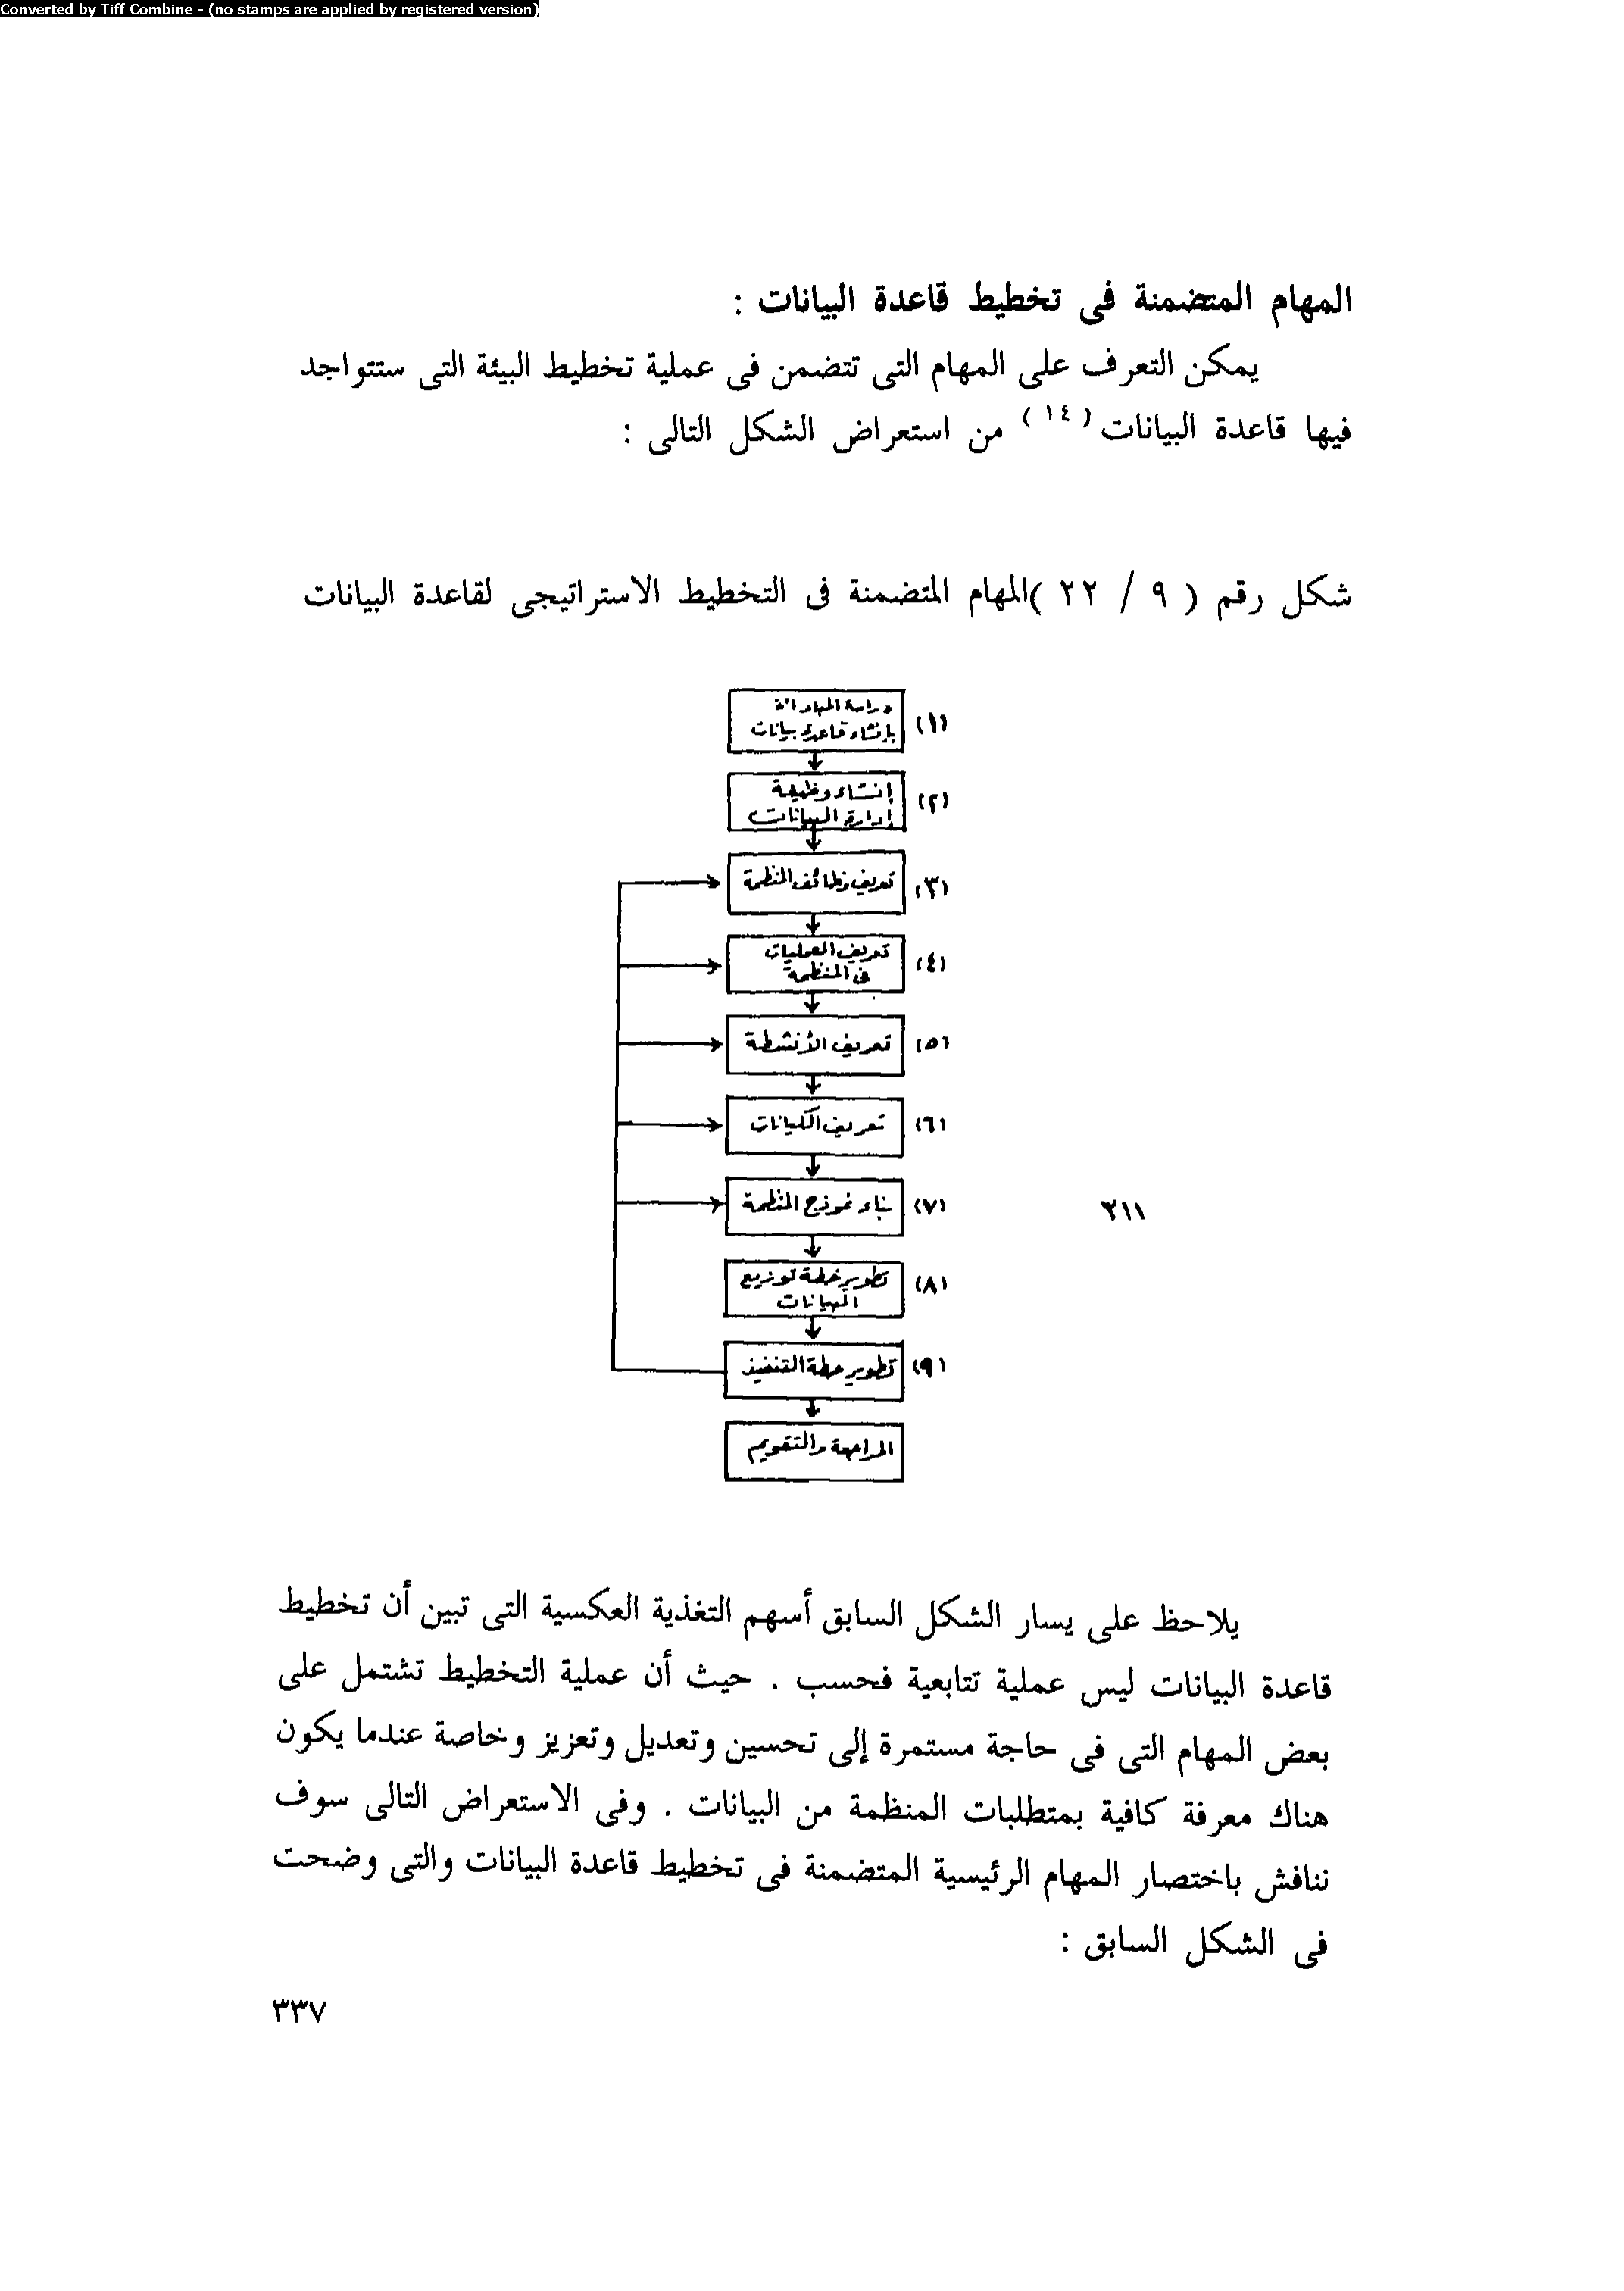 Converted by Tiff Combine - (no stamps are applied by registered version)
المهام المتضمنة فى تخطيط قاعدة البيانات :
يمكن التعرف على المهام التى تتضمن فى عملية تخطيط البيئة التى ستتواجد
فيها قاعدة البيانات (١٤) من استعراض الشكل التالى :
شكل رقم ( ٩ / ٢٢ )المهام المتضمنة فى التخطيط الاستراتيجى لقاعدة البيانات
(١)
دراسة
بإنشاء قاعدة بيانات
(٢)
إنشاء وظيفة
إدارة البيانات
(٣)
تعريف وظائف المنظمة
(٤)
تعريف العمليات
فى المنظمة
(٥)
تعريف الأنشطة
(٦)
تعريف الكيانات
(٧)
بناء نموذج المنظمة
٢١١
(٨)
تطوير خطة توزيع
البيانات
(٩)
تطوير خطة التنفيذ
المراجعة والتقويم
يلاحظ على يسار الشكل السابق أسهم التغذية العكسية التى تبين أن تخطيط
قاعدة البيانات ليس عملية تتابعية فحسب . حيث أن عملية التخطيط تشتمل على
بعض المهام التى فى حاجة مستمرة إلى تحسين وتعديل وتعزيز وخاصة عندما يكون
هناك معرفة كافية بمتطلبات المنظمة من البيانات . وفى الاستعراض التالى سوف
ننافش باختصار المهام الرئيسية المتضمنة فى تخطيط قاعدة البيانات والتى وضحت
فى الشكل السابق :
٣٣٧